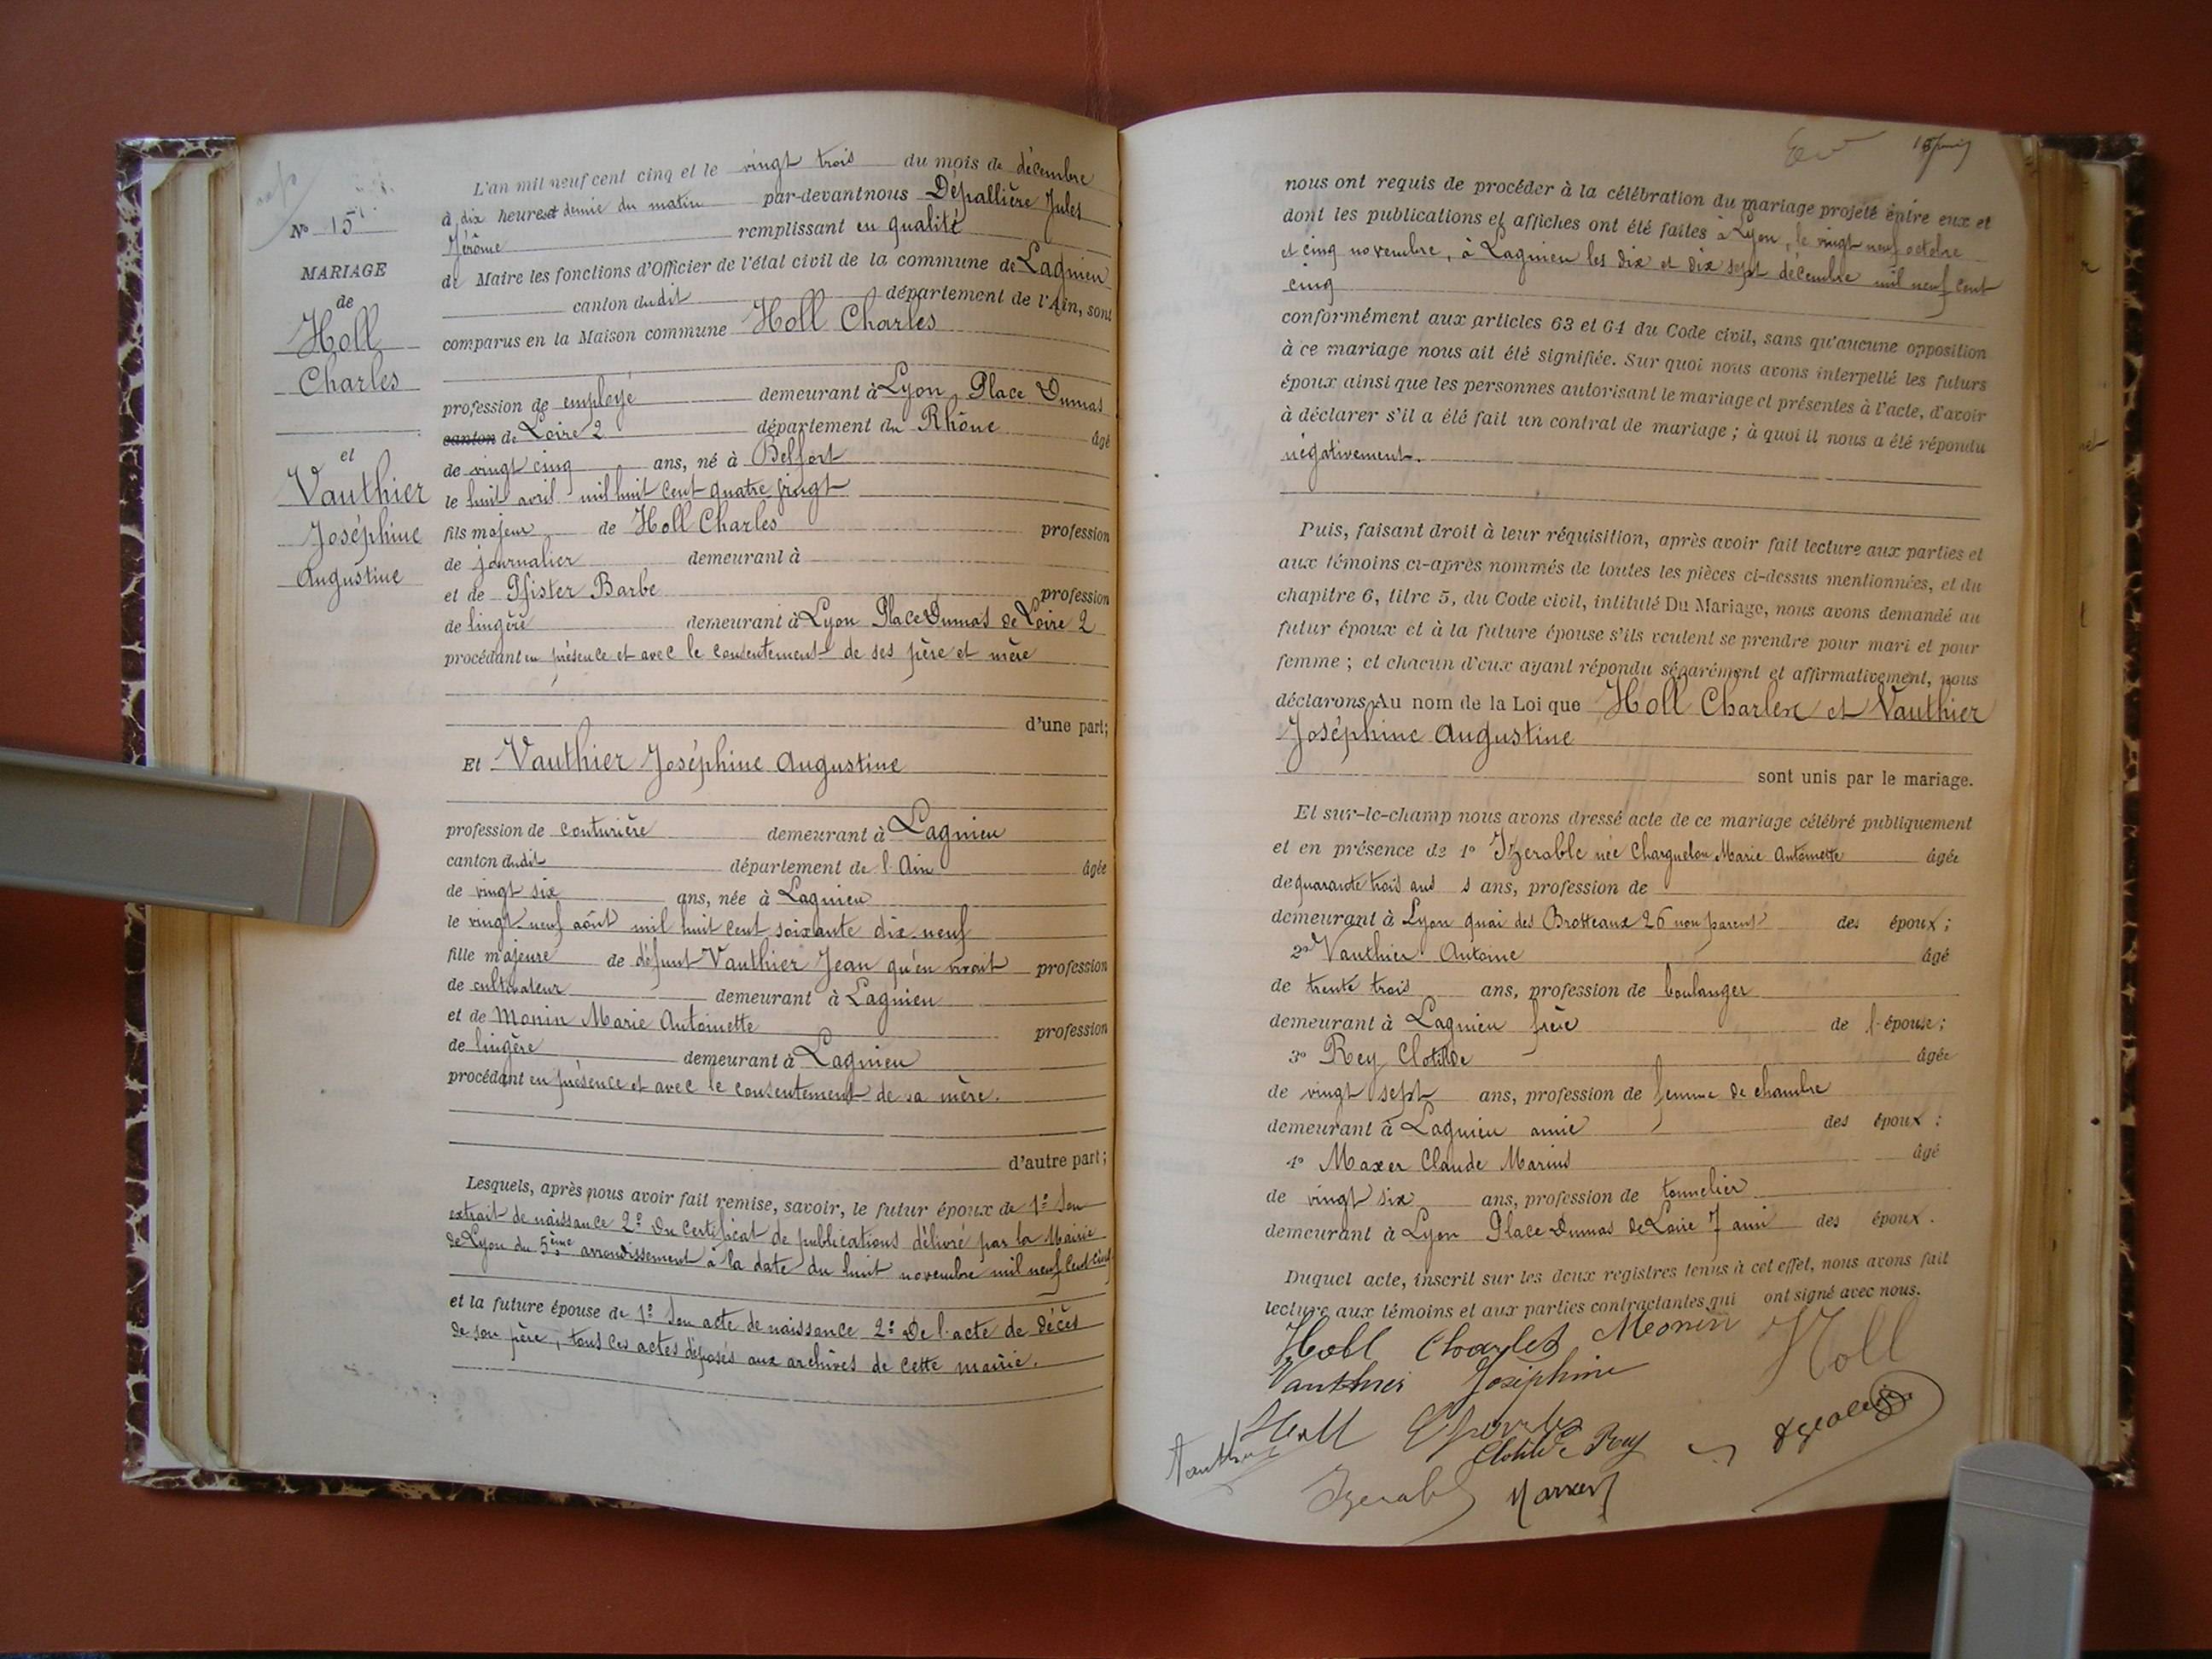 L'an mil neuf cent cinq et le vingt trois du mois de décembre
à dix heures et demie du matin par-devant nous Dépallière Jules
Jérôme remplissant en qualité
de Maire les fonctions d'Officier de l'état civil de la commune de Lagnieu
canton dudit département de l'Ain, sont
comparus en la Maison commune Holl Charles
profession de employé demeurant à Lyon, Place Dumas
canton de Loire 2 département du Rhône âgé
de vingt cinq ans, né à Belfort
le huit avril mil huit cent quatre vingt
fils majeur de Holl Charles profession
de journalier demeurant à
et de Pfister Barbe profession
de lingère demeurant à Lyon Place Dumas de Loire 2
procédant en présence et avec le consentement de ses père et mère
d'une part;
Et Vauthier Joséphine Augustine
profession de couturière demeurant à Lagnieu
canton dudit département de l'Ain âgée
de vingt six ans, née à Lagnieu
le vingt-neuf août mil huit cent soixante dix-neuf
fille majeure de défunt Vauthier Jean qu'en vivait profession
de cultivateur demeurant à Lagnieu
et de Monin Marie Antoinette profession
de lingère demeurant à Lagnieu
procédant en présence et avec le consentement de sa mère.
d'autre part;
Lesquels, après nous avoir fait remise, savoir, le futur époux de 1º Son
extrait de naissance 2º Du Certificat de publications délivré par la Mairie
de Lyon du 5ème arrondissement à la date du huit novembre mil neuf cent cinq
et la future épouse de 1º Son acte de naissance 2º De l'acte de décès
de son père, tous ces actes déposés aux archives de cette mairie.
Nº 15
MARIAGE
de
Holl
Charles
et
Vauthier
Joséphine
Augustine
nous ont requis de procéder à la célébration du mariage projeté entre eux et
dont les publications et affiches ont été faites à Lyon, le vingt neuf octobre
et cinq novembre, à Lagnieu les dix et dix sept décembre mil neuf cent
cinq
conformément aux articles 63 et 64 du Code civil, sans qu'aucune opposition
à ce mariage nous ait été signifiée. Sur quoi nous avons interpellé les futurs
époux ainsi que les personnes autorisant le mariage et présentes à l'acte, d'avoir
à déclarer s'il a été fait un contrat de mariage ; à quoi il nous a été répondu
négativement.
Puis, faisant droit à leur réquisition, après avoir fait lecture aux parties et
aux témoins ci-après nommés de toutes les pièces ci-dessus mentionnées, et du
chapitre 6, titre 5, du Code civil, intitulé Du Mariage, nous avons demandé au
futur époux et à la future épouse s'ils veulent se prendre pour mari et pour
femme ; et chacun d'eux ayant répondu séparément et affirmativement, nous
déclarons Au nom de la Loi que Holl Charles et Vauthier
Joséphine Augustine
sont unis par le mariage.
Et sur-le-champ nous avons dressé acte de ce mariage célébré publiquement
et en présence de 1º Izerable née Charguelon Marie Antoinette âgée
de quarante trois ans s ans, profession de
demeurant à Lyon quai des Brotteaux 26 non parent des époux ;
2º Vauthier Antoine âgé
de trente trois ans, profession de boulanger
demeurant à Lagnieu frère de l'épouse ;
3º Rey Clotilde âgée
de vingt sept ans, profession de femme de chambre
demeurant à Lagnieu amie des époux :
4º Maxer Claude Marius âgé
de vingt six ans, profession de tonnelier
demeurant à Lyon Place Dumas de Loire 7 ami des époux.
Duquel acte, inscrit sur les deux registres tenus à cet effet, nous avons fait
lecture aux témoins et aux parties contractantes qui ont signé avec nous.
Holl Charles Monin Holl
Vauthier Joséphine
Holl Charles
Vauthier Clotilde Rey
Izerable